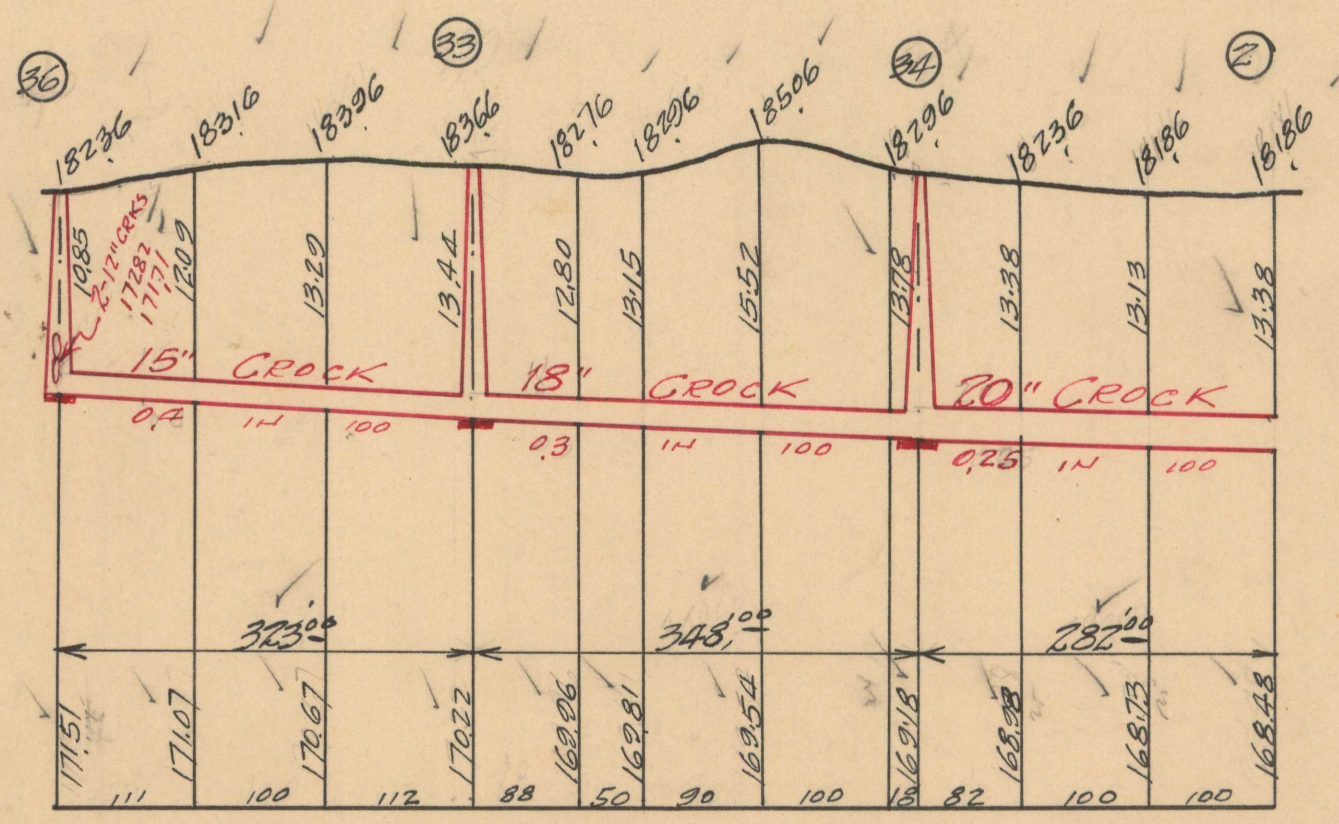 36 33 34 2
182.36 183.16 183.96 183.66 182.76 182.96 185.06 182.96 182.36 181.86 181.86
10.85 12.09 13.29 13.44 12.80 13.15 15.52 13.78 13.38 13.13 13.38
2-12" CRKS
172.82
171.71
15" CROCK 18" CROCK 20" CROCK
0.4 IN 100 0.3 IN 100 0.25 IN 100
323.'00 348.'00 282.'00
171.51 171.07 170.67 170.22 169.96 169.81 169.54 169.18 168.98 168.73 168.48
111 100 112 88 50 90 100 18 82 100 100